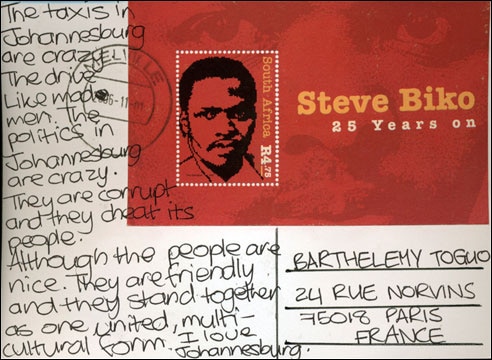 The taxis in
Johannesburg
are crazy
The drive
like made
men. The
politics in
Johannesburg
are crazy.
They are corrupt
and they cheat its
people.
Although the people are
nice. They are friendly
and they stand together
as one united, multi-
cultural form. I love
Johannesburg.
South Africa
R4.75
Steve Biko
25 Years on
BARTHELEMY TOGUO
24 RUE NORVINS
75018 PARIS
FRANCE